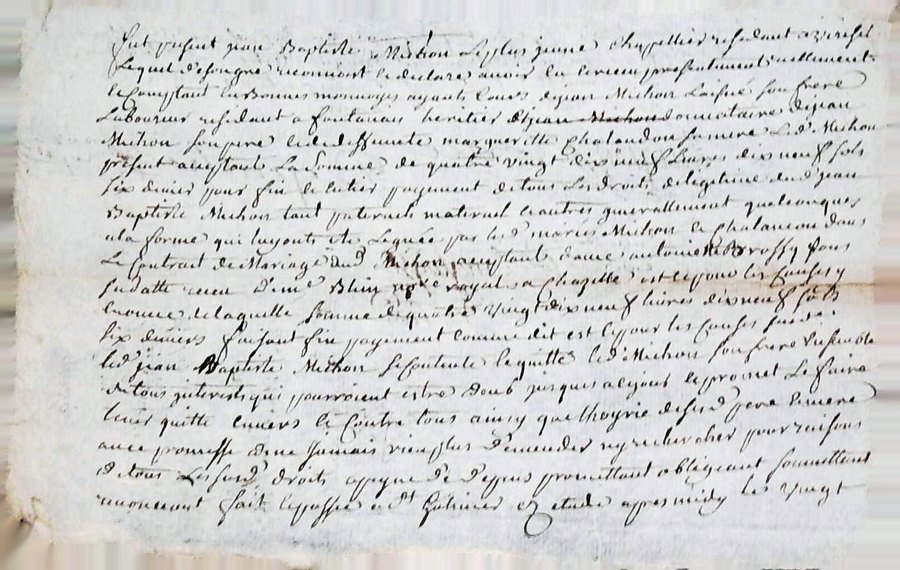 fut present jean Baptiste Michon le plus jeune chapellier residant a
lequel de son gre reconnoit et declare avoir eu et receu presentement reellement
et comptant en Bonnes monnoyes ayants cours de jean Michon laisné son frere
Laboureur residant a fontanais heritier de jean Michon donnataire de jean
Michon son pere et de deffuncte margueritte Chalandon sa mere led. Michon
present acceptant La Somme de quatre vingt dix neuf Livres dix neuf sols
six denier pour fin et entier payement de tous Les droits de legitime dud. jean
Baptiste Michon tant paternels maternel et autres generallement quelconques
a la forme qui luy ont ete Leguée par led. mariés Michon et Chalandon dans
Le Contrat de Mariage dud. Michon acceptant dame antoinette Brossy sous
sa datte receu d'eme Blein nore royal a Chazelle est et pour les Causes y
de laquelle Somme de quatre vingt dix neuf livres dix neuf sols
six deniers faisant fin payement comme dit est et pour les causes susd.
led. jean Baptiste Michon se contente et quitte led. Michon son frere Ensemble
de tous interests qui pourroient estre doub jusques a ce jour et promet Le faire
tenir quitte envers et Contre tous ainsy que l'hoyrie de sesd. pere et mere
avec promesse de ne jamais rien plus demander ny rechercher pour raisons
de tous Lesusd. droits a peyne de d'epens promettant obligeant soumettant
renonceant fait et passé a St Galmier Ez etude apres midy les vingt